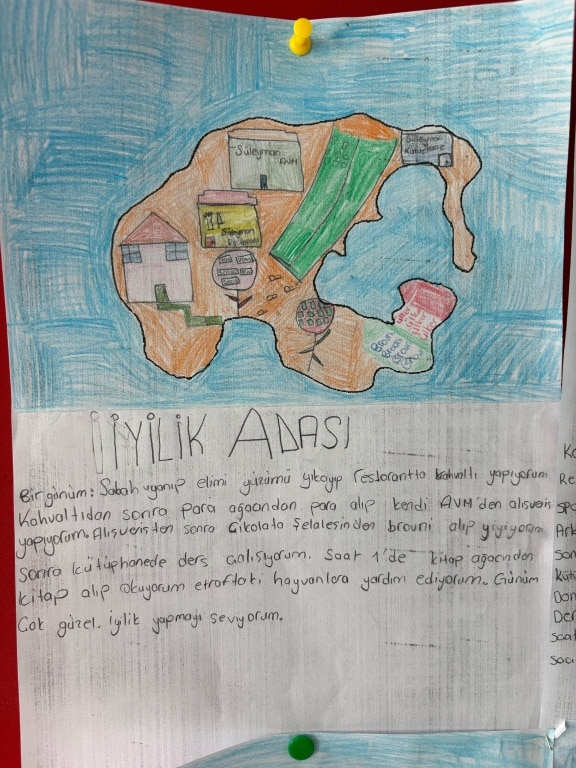 Süleyman
AVM
Süleyman
Kütüphane
Süleyman
Brovni
Brovni
Brovni
Brovni
İYİLİK ADASI
Bir günüm: Sabah uyanıp elimi yüzümü yıkayıp restorantta kahvaltı yapıyorum
Kahvaltıdan sonra para ağacından para alıp kendi AVM'den alışveriş
yapıyorum. Alışverişten sonra Çikolata Şelalesinden brovni alıp yiyiyorum
sonra kütüphonede ders çalışıyorum. Saat 1'de kitap ağacından
kitap alıp okuyorum etraftaki hayvanlara yardım ediyorum. Günüm
Çok güzel. İyilik yapmayı seviyorum.
Ka
Re
spo
Ark
son
Kütü
Don
Der
saat